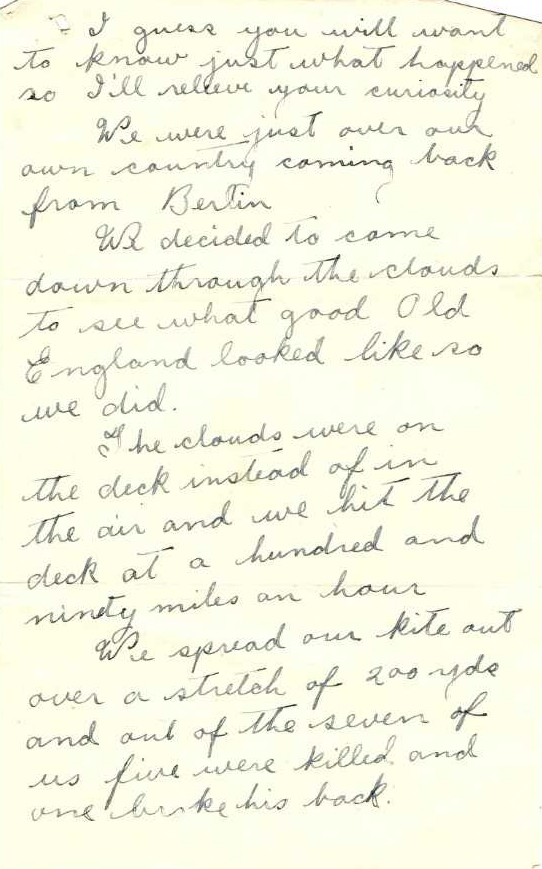 I guess you will want
to know just what happened
so I'll relieve your curiosity
We were just over our
own country coming back
from Berlin
We decided to come
down through the clouds
to see what good Old
England looked like so
we did.
The clouds were on
the deck instead of in
the air and we hit the
deck at a hundred and
ninety miles an hour
We spread our kite out
over a stretch of 200 yds
and out of the seven of
us five were killed and
one broke his back.